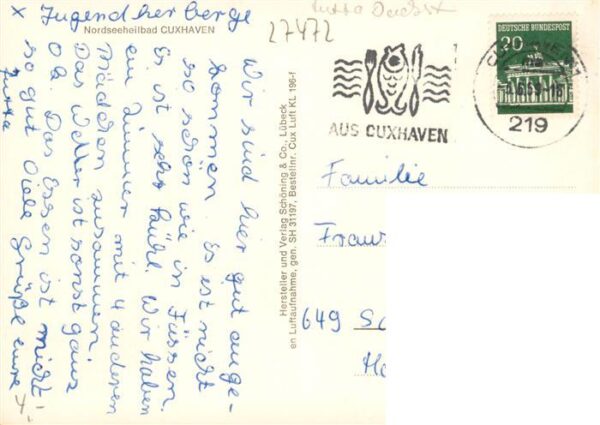 x Jugendherberge
Nordseeheilbad CUXHAVEN
Wir sind hier gut ange-
kommen. Es ist nicht
so schön wie in Füssen.
Es ist sehr kühl. Wir haben
ein Zimmer mit 4 anderen
Mädchen zusammen.
Das Wetter ist sonst ganz
Ok. Das Essen ist nicht
so gut. Viele Grüße eure
Jutta
27472
Hersteller und Verlag Schöning & Co., Lübeck
en Luftaufnahme, gen. SH 31197, Bestellnr. Cux Luft KL 196-f
AUS CUXHAVEN
DEUTSCHE BUNDESPOST
20
219
Familie
Franz
649 Sc
Ha